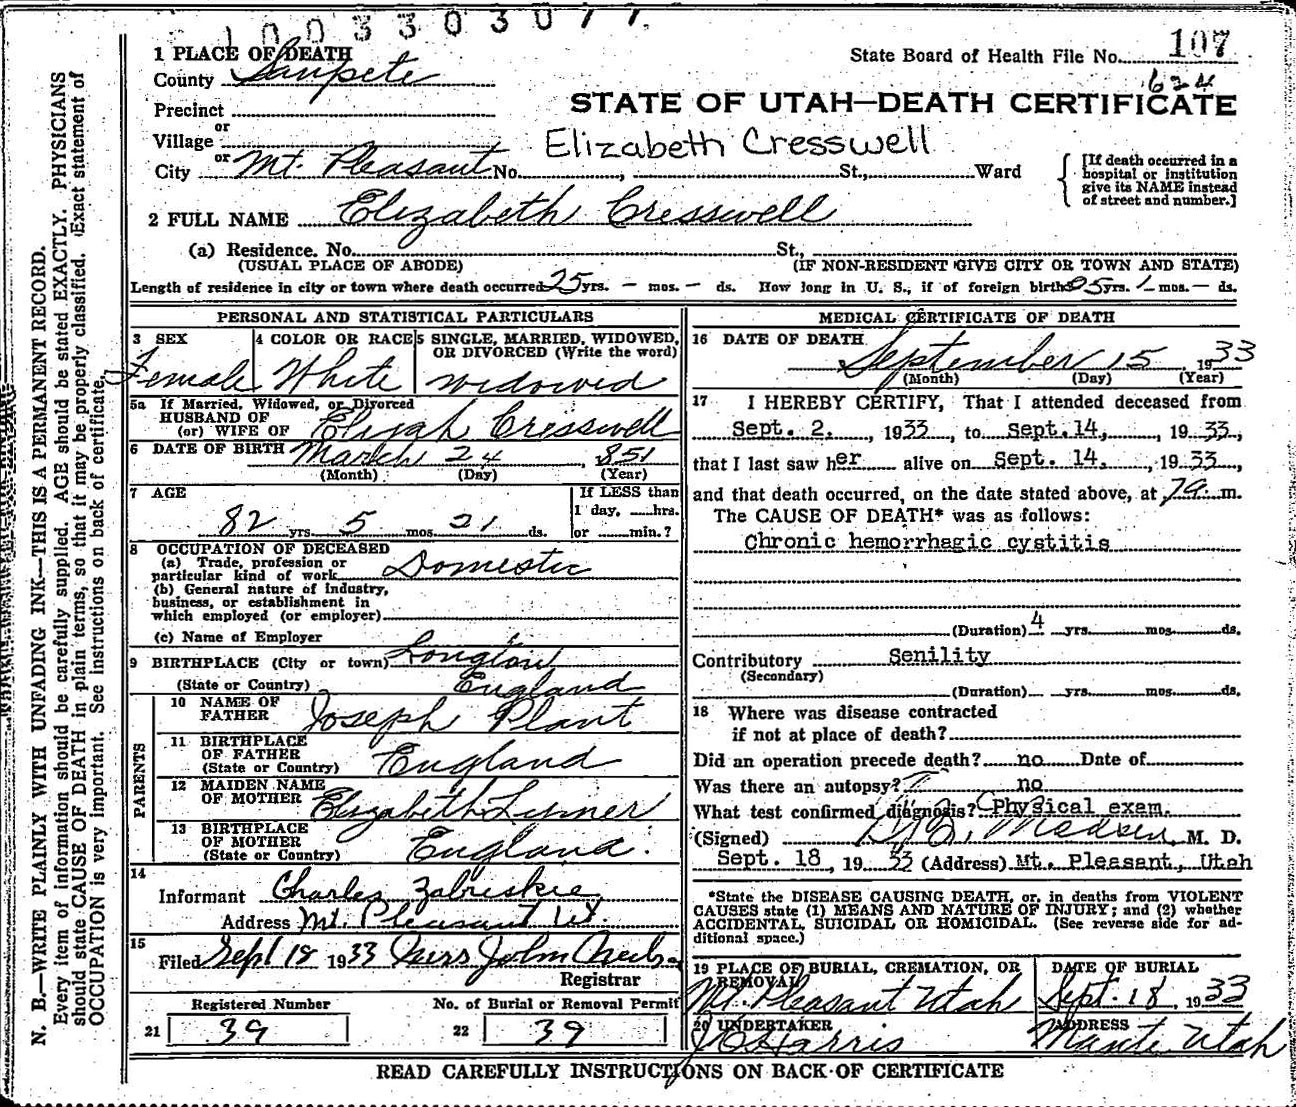 1003303077.
1 PLACE OF DEATH
County Sanpete
State Board of Health File No. 107
624
Precinct
or
Village
or
City Mt. Pleasant No. , St., Ward
STATE OF UTAH—DEATH CERTIFICATE
Elizabeth Cresswell
[If death occurred in a
hospital or institution
give its NAME instead
of street and number.]
2 FULL NAME Elizabeth Cresswell
(a) Residence. No. St.,
(USUAL PLACE OF ABODE) (IF NON-RESIDENT GIVE CITY OR TOWN AND STATE)
Length of residence in city or town where death occurred 25 yrs. — mos. — ds. How long in U. S., if of foreign birth? yrs. 1 mos. — ds.
PERSONAL AND STATISTICAL PARTICULARS
3 SEX
Female
4 COLOR OR RACE
White
5 SINGLE, MARRIED, WIDOWED,
OR DIVORCED (Write the word)
widowed
5a If Married, Widowed, or Divorced
HUSBAND OF
(or) WIFE OF Elijah Cresswell
6 DATE OF BIRTH March 24, 1851
(Month) (Day) (Year)
7 AGE
82 yrs 5 mos 21 ds.
If LESS than
1 day, hrs.
or min.?
8 OCCUPATION OF DECEASED
(a) Trade, profession or
particular kind of work Domestic
(b) General nature of industry,
business, or establishment in
which employed (or employer)
(c) Name of Employer
9 BIRTHPLACE (City or town) Longton
(State or Country) England
PARENTS
10 NAME OF
FATHER Joseph Plant
11 BIRTHPLACE
OF FATHER
(State or Country) England
12 MAIDEN NAME
OF MOTHER Elizabeth
13 BIRTHPLACE
OF MOTHER
(State or Country) England.
14
Informant Charles Zabriskie
Address Mt. Pleasant Ut.
15
Filed Sept 18 1933 John
Registrar
Registered Number
21 39
No. of Burial or Removal Permit
22 39
MEDICAL CERTIFICATE OF DEATH
16 DATE OF DEATH
September 15 1933
(Month) (Day) (Year)
17 I HEREBY CERTIFY, That I attended deceased from
Sept. 2, 1933, to Sept. 14, 1933,
that I last saw her alive on Sept. 14, 1933,
and that death occurred, on the date stated above, at 7a m.
The CAUSE OF DEATH* was as follows:
Chronic hemorrhagic cystitis
(Duration) 4 yrs. mos. ds.
Contributory Senility
(Secondary)
(Duration) yrs. mos. ds.
18 Where was disease contracted
if not at place of death?
Did an operation precede death? no Date of
Was there an autopsy? no
What test confirmed diagnosis? Physical exam.
(Signed) Madsen M. D.
Sept. 18, 1933 (Address) Mt. Pleasant, Utah
*State the DISEASE CAUSING DEATH, or, in deaths from VIOLENT
CAUSES state (1) MEANS AND NATURE OF INJURY; and (2) whether
ACCIDENTAL, SUICIDAL OR HOMICIDAL. (See reverse side for ad-
ditional space.)
19 PLACE OF BURIAL, CREMATION, OR
REMOVAL
Mt. Pleasant Utah
DATE OF BURIAL
Sept. 18, 1933
20 UNDERTAKER
Harris
ADDRESS
Manti Utah
READ CAREFULLY INSTRUCTIONS ON BACK OF CERTIFICATE
N. B.—WRITE PLAINLY WITH UNFADING INK—THIS IS A PERMANENT RECORD.
Every item of information should be carefully supplied. AGE should be stated EXACTLY. PHYSICIANS
should state CAUSE OF DEATH in plain terms, so that it may be properly classified. Exact statement of
OCCUPATION is very important. See instructions on back of certificate.